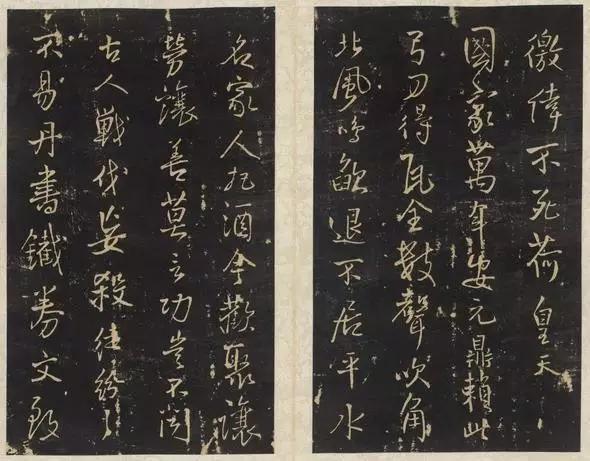 徼倖不死荷皇天
國家萬年安元鼎賴此
弓刀得瓦全數聲吹角
北風鳴歛退不居平水
名家人把酒今歡聚讓
勞讓善莫言功豈不聞
古人戰伐妄殺徒紛々
不易丹書鐵券文致